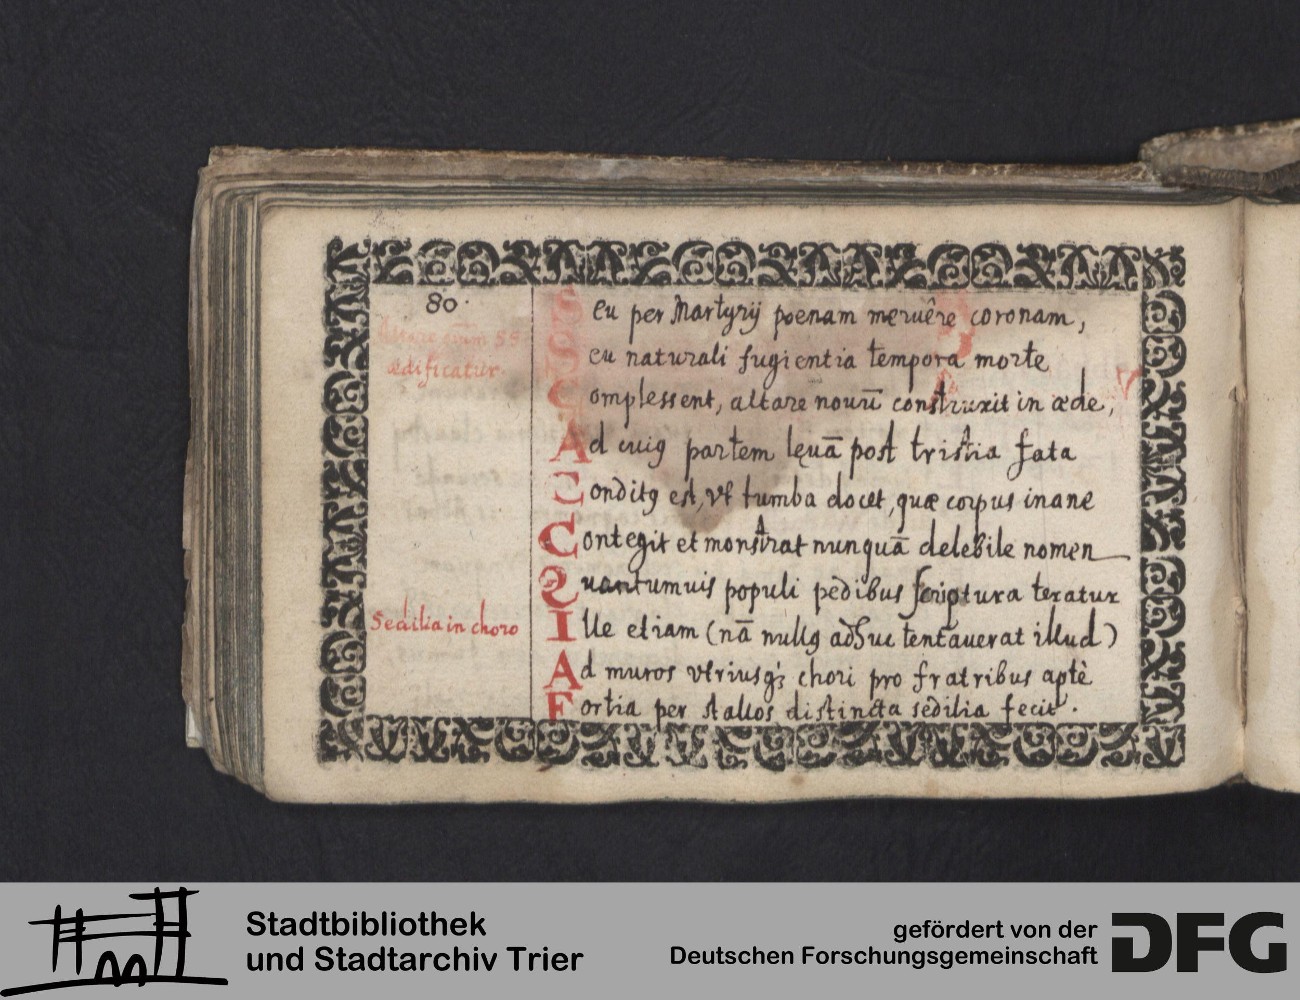 80.
Altare om̄iū SS
ædificatur
Seu per Martyrij poenam meruêre coronam,
Seu naturali fugientia tempora morte
Complessent, altare nouū construxit in æde,
Ad cuiꝰ partem lęuā post tristia fata
Conditꝰ est, vt tumba docet, quæ corpus inane
Contegit et monstrat nunquā delebile nomen
Quantumuis populi pedibus scriptura teratur
Sedilia in choro
Ille etiam (nā nullꝰ adhuc tentauerat illud)
Ad muros vtriusqꝫ chori pro fratribus aptè
Fortia per stallos distincta sedilia fecit.
Stadtbibliothek
und Stadtarchiv Trier
gefördert von der
Deutschen Forschungsgemeinschaft
DFG